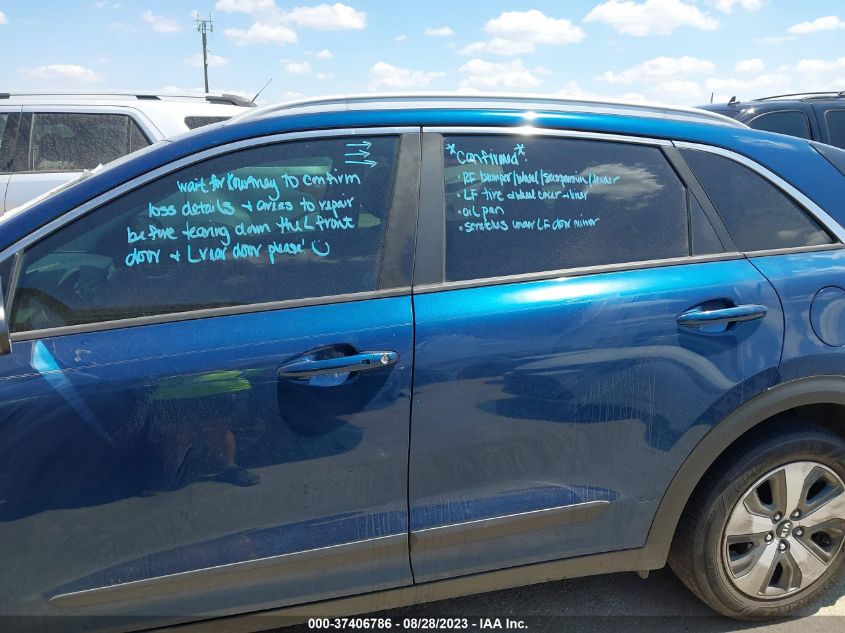 wait for Kourtney to confirm
loss details + areas to repair
before tearing down the L front
door + L rear door please!
*Confirmed*
• RF bumper/wheel/suspension/fender
• LF tire + wheel cover + liner
• oil pan
• scratches under LF door mirror
KIA
000-37406786 - 08/28/2023 - IAA Inc.